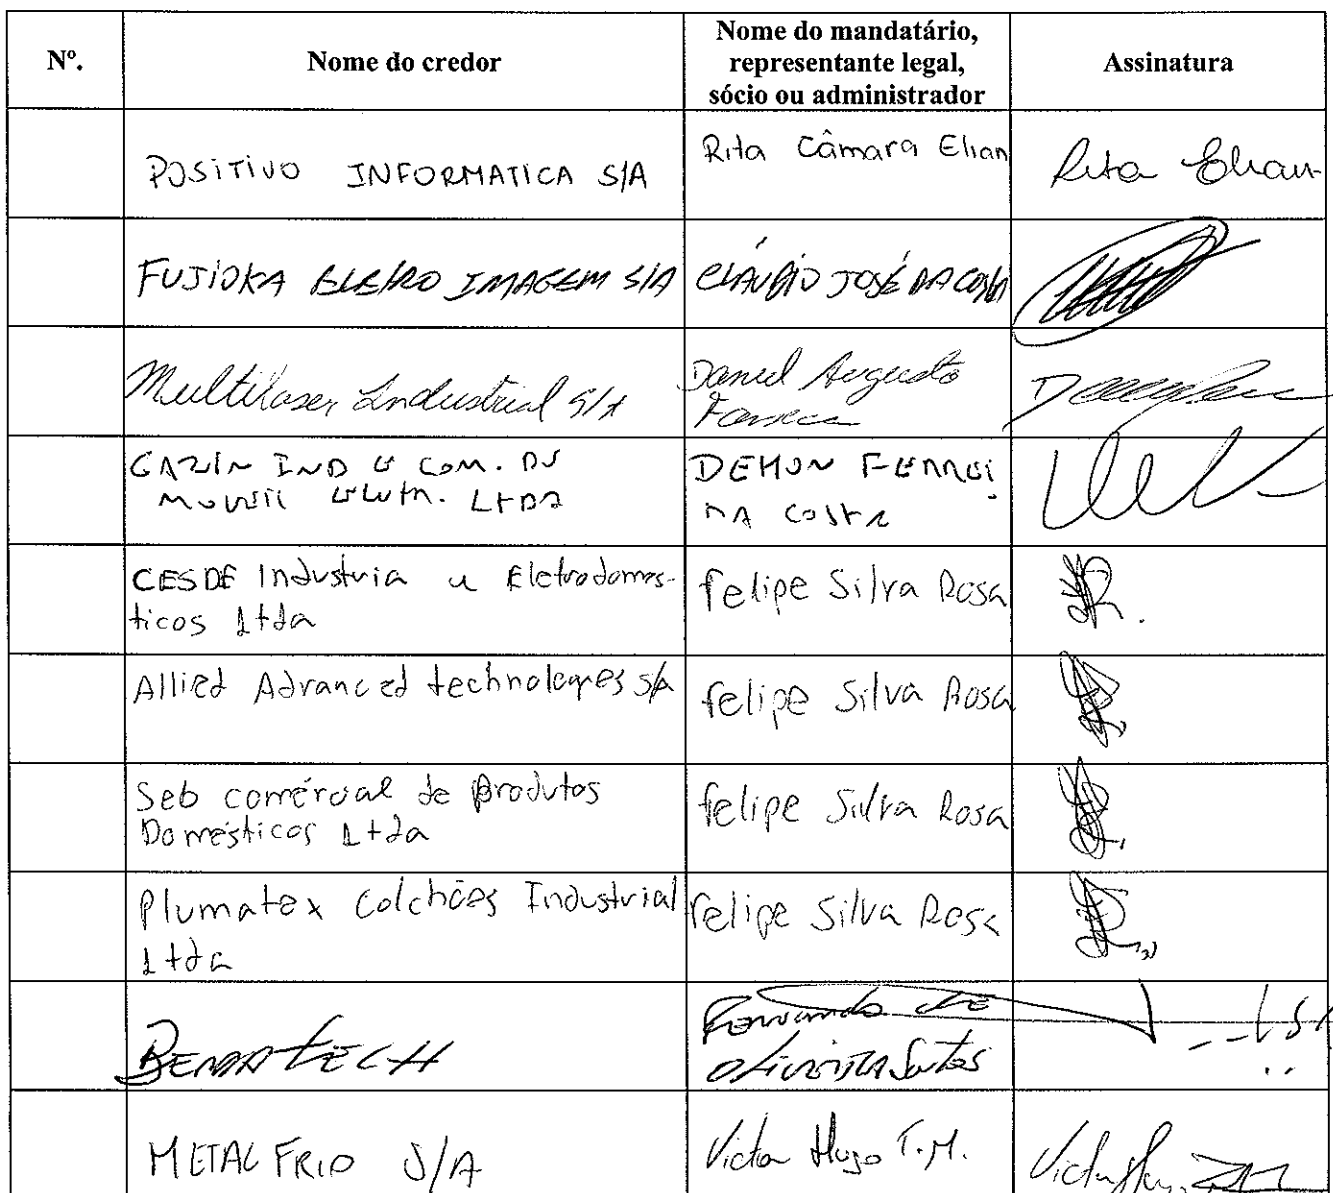 Nº.
Nome do credor
Nome do mandatário,
representante legal,
sócio ou administrador
Assinatura
POSITIVO INFORMATICA S/A
Rita Câmara Elian
Rita Elian
FUJIOKA ELETRO IMAGEM S/A
CLÁUDIO JOSÉ DA COSTA
Multilaser Industrial S/A
Daniel Augusto
Fonseca
GAZIN IND E COM. DE
MOVEIS ELETR. LTDA
DA COSTA
CESDE Industria Eletrodomes-
ticos Ltda
felipe Silva Rosa
Allied Advanced technologies S/A
felipe Silva Rosa
Seb comércial de Produtos
Domésticos Ltda
felipe Silva Rosa
Plumatex Colchões Industrial
Ltda
felipe Silva Rosa
Fernando de
Oliveira Santos
METALFRIO S/A
Victor Hugo T.M.